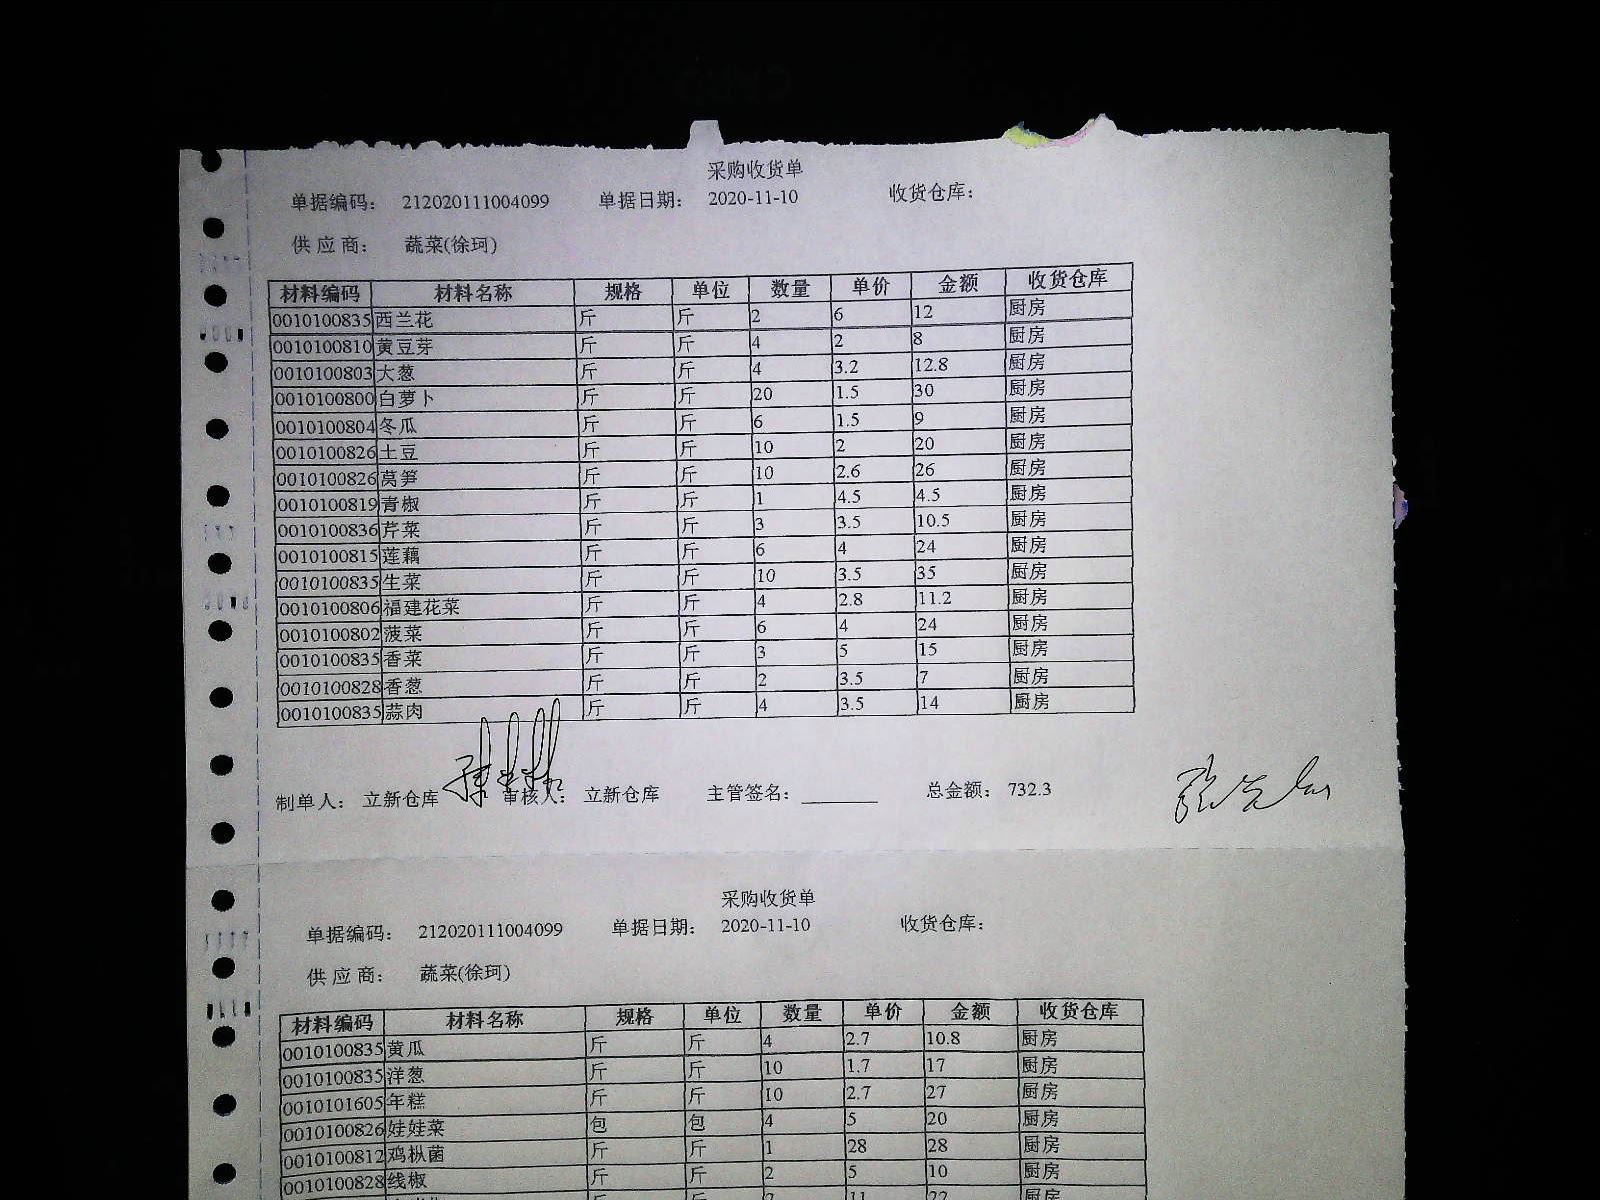 采购收货单
单据编码： 212020111004099 单据日期： 2020-11-10 收货仓库：
供 应 商： 蔬菜(徐珂)
材料编码 材料名称 规格 单位 数量 单价 金额 收货仓库
0010100835 西兰花 斤 斤 2 6 12 厨房
0010100810 黄豆芽 斤 斤 4 2 8 厨房
0010100803 大葱 斤 斤 4 3.2 12.8 厨房
0010100800 白萝卜 斤 斤 20 1.5 30 厨房
0010100804 冬瓜 斤 斤 6 1.5 9 厨房
0010100826 土豆 斤 斤 10 2 20 厨房
0010100826 莴笋 斤 斤 10 2.6 26 厨房
0010100819 青椒 斤 斤 1 4.5 4.5 厨房
0010100836 芹菜 斤 斤 3 3.5 10.5 厨房
0010100815 莲藕 斤 斤 6 4 24 厨房
0010100835 生菜 斤 斤 10 3.5 35 厨房
0010100806 福建花菜 斤 斤 4 2.8 11.2 厨房
0010100802 菠菜 斤 斤 6 4 24 厨房
0010100835 香菜 斤 斤 3 5 15 厨房
0010100828 香葱 斤 斤 2 3.5 7 厨房
0010100835 蒜肉 斤 斤 4 3.5 14 厨房
制单人： 立新仓库 审核人： 立新仓库 主管签名： 总金额： 732.3
采购收货单
单据编码： 212020111004099 单据日期： 2020-11-10 收货仓库：
供 应 商： 蔬菜(徐珂)
材料编码 材料名称 规格 单位 数量 单价 金额 收货仓库
0010100835 黄瓜 斤 斤 4 2.7 10.8 厨房
0010100835 洋葱 斤 斤 10 1.7 17 厨房
0010101605 年糕 斤 斤 10 2.7 27 厨房
0010100826 娃娃菜 包 包 4 5 20 厨房
0010100812 鸡枞菌 斤 斤 1 28 28 厨房
0010100828 线椒 斤 斤 2 5 10 厨房
11 22 厨房